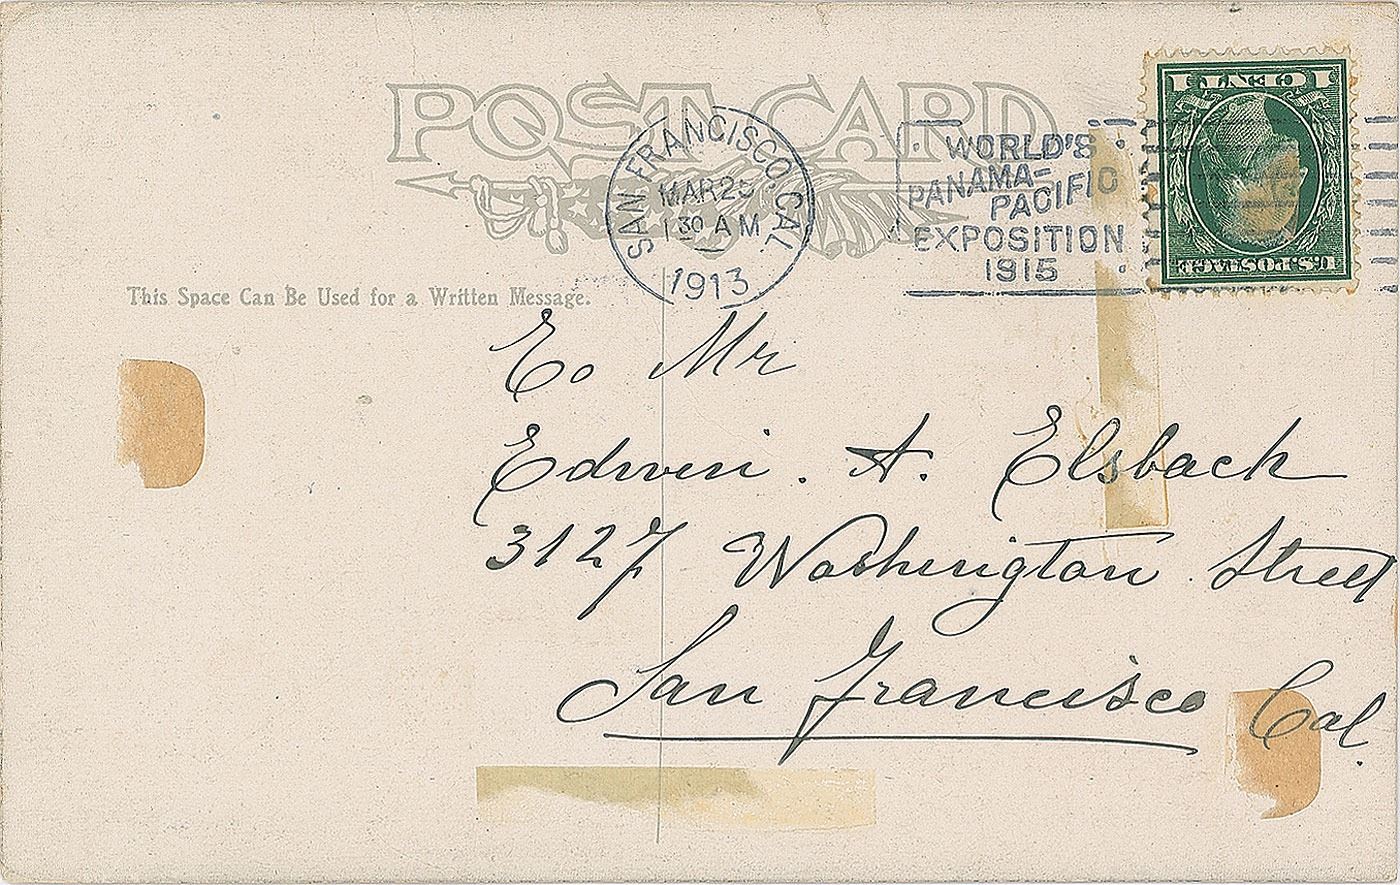 POST CARD
SAN FRANCISCO, CAL.
MAR 25
1 30 AM
1913
WORLD'S
PANAMA-
PACIFIC
EXPOSITION
1915
U.S. POSTAGE
1 CENT 1
This Space Can Be Used for a Written Message.
To Mr
Edwin. A. Elsbach
3127 Washington Street
San Francisco Cal.